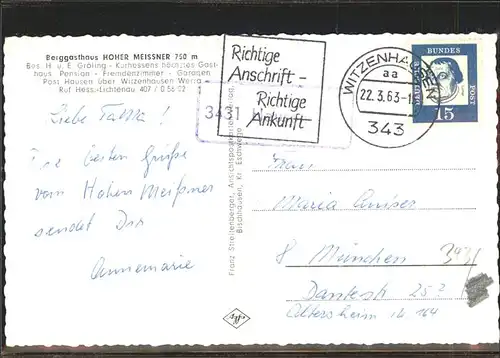 Berggasthaus HOHER MEISSNER 750 m
Bes. H. u. E. Gröling - Kurhessens höchstes Gast-
haus Pension - Fremdenzimmer - Garagen
Post Hausen über Witzenhausen Werra -
Ruf Hess.-Lichtenau 407 / 0 56 02
Liebe Tante!
Die besten Grüße
vom Hohen Meißner
sendet Dir
Annemarie
Franz Streitenberger, Ansichtspostkartenverlag,
Bischhausen, Kr. Eschwege
Agfa
Richtige
Anschrift -
Richtige
Ankunft
3431
WITZENHAUSEN
aa
22.3.63-
343
DEUTSCHE
BUNDES
POST
15
Frau
Maria
8 München
Dantestr. 25
Altersheim 164